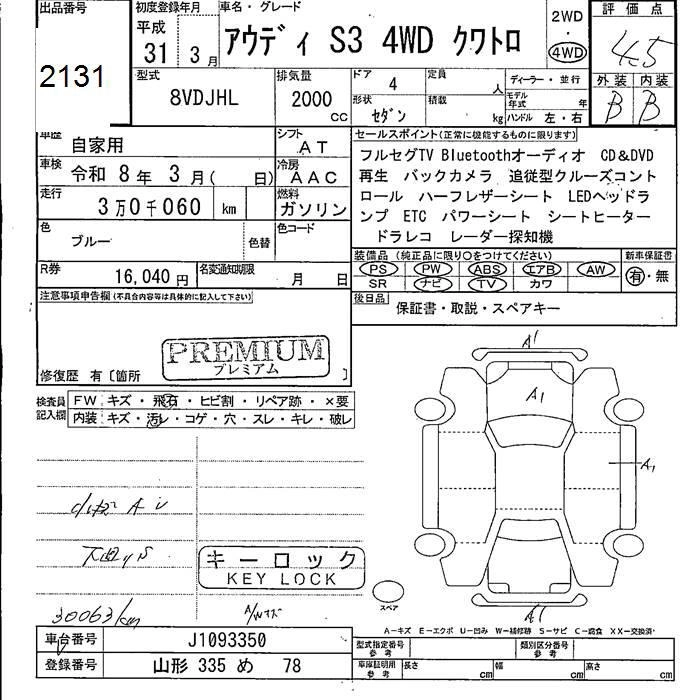 出品番号
2131
初度登録年月
平成
31年 3月
車名・グレード
アウディ S3 4WD クワトロ
2WD
・
4WD
評価点
4.5
外装 内装
B B
型式
8VDJHL
排気量
2000
cc
ドア 4
形状 セダン
定員 人
積載 kg
ディーラー・並行
モデル年式 年
ハンドル 左・右
車歴 自家用
シフト AT
車検 令和 8年 3月( 日)
冷房 AAC
走行 3万0千060 km
燃料 ガソリン
色 ブルー
色替
色コード
R券 16,040円
名変通知期限 月 日
セールスポイント(正常に機能するものに限ります)
フルセグTV Bluetoothオーディオ CD&DVD
再生 バックカメラ 追従型クルーズコント
ロール ハーフレザーシート LEDヘッドラ
ンプ ETC パワーシート シートヒーター
ドラレコ レーダー探知機
装備品(純正品に限り○をつけてください)
新車保証書
PS PW ABS エアB AW
SR ナビ TV カワ
有・無
後日品 保証書・取説・スペアキー
注意事項申告欄(不具合内容等は具体的に記入して下さい)
PREMIUM
プレミアム
修復歴 有〔箇所 〕
検査員記入欄
FW キズ・飛石・ヒビ割・リペア跡・×要
内装 キズ・汚レ・コゲ・穴・スレ・キレ・破レ
キーロック
KEY LOCK
30063km
A/Wキズ
A1
A1
A1
A1
スペア
A-キズ E-エクボ U-凹み W-補修跡 S-サビ C-腐食 XX-交換済
車台番号 J1093350
登録番号 山形 335 め 78
型式指定番号 参考
類別区分番号 参考
車庫証明用 参考
長さ cm 幅 cm 高さ cm